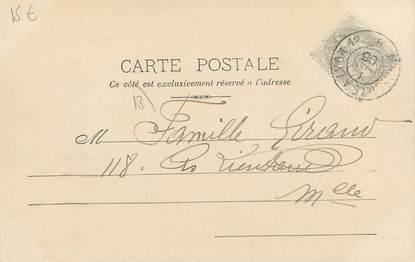 15 €
CARTE POSTALE
Ce côté est exclusivement réservé à l'adresse
13)
M Famille Giraud
118. Crs Lieutaud
Mlle